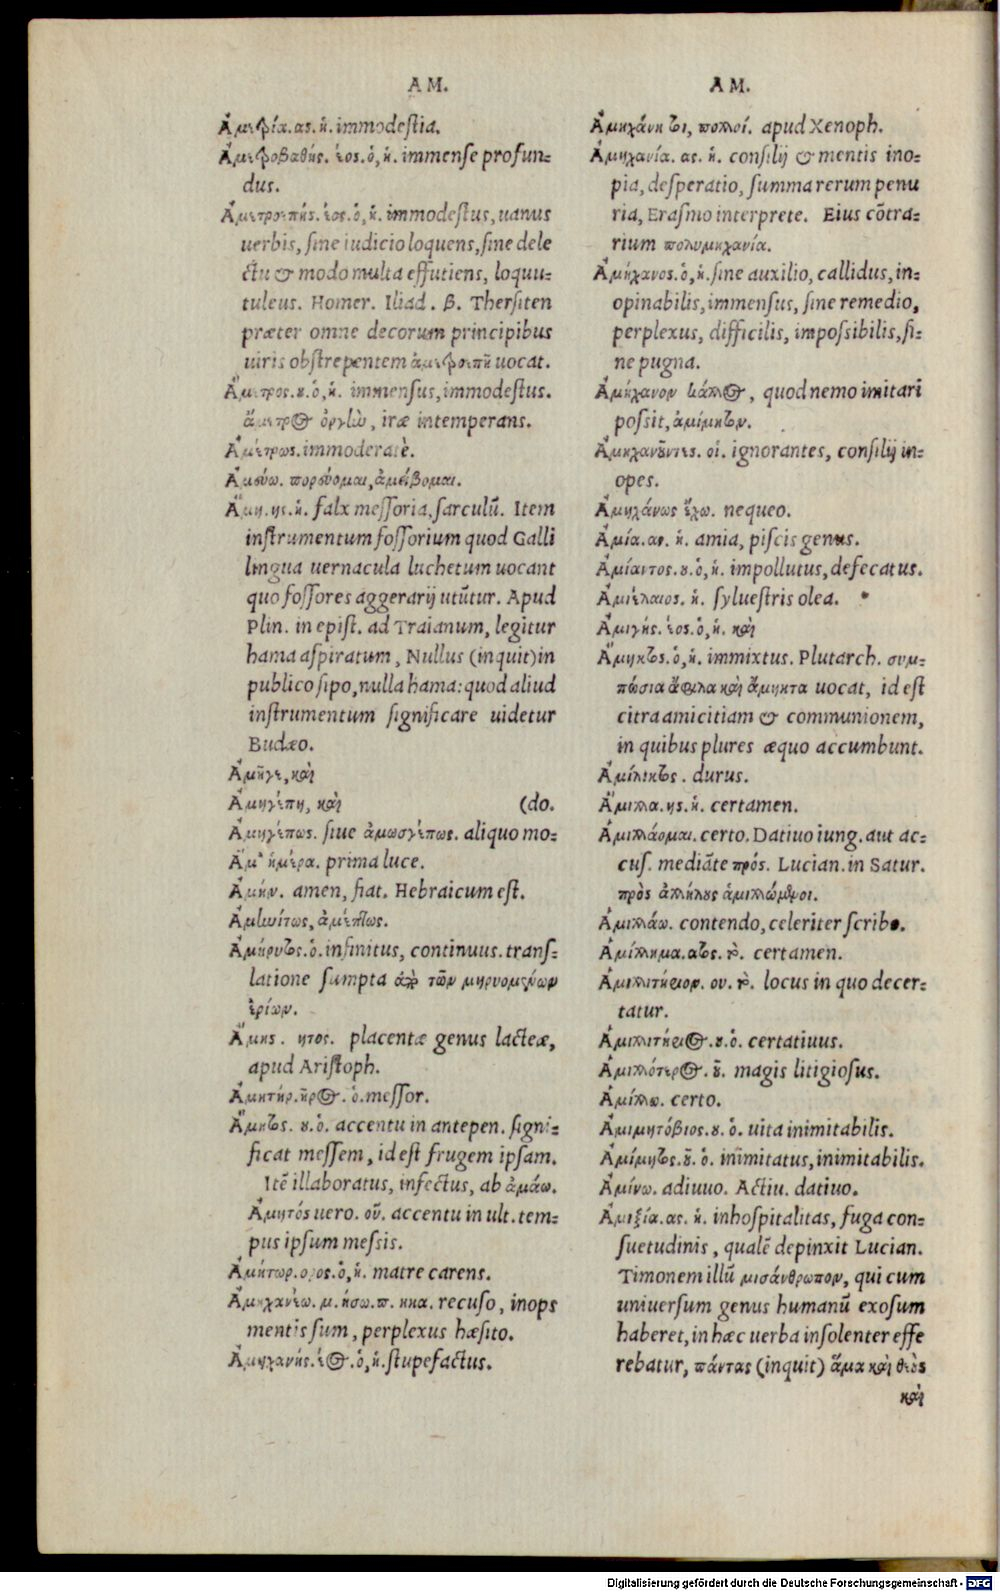 AM.
Ἀμετρία. ας. ἡ. immodestia.
Ἀμετροβαθής. έος. ὁ, ἡ. immense profun=
dus.
Ἀμετροεπής. έος. ὁ, ἡ. immodestus, uanus
uerbis, sine iudicio loquens, sine dele
ctu & modo multa effutiens, loquu=
tuleus. Homer. Iliad. β. Thersiten
præter omne decorum principibus
uiris obstrepentem ἀμετροεπῆ uocat.
Ἄμετρος. ου. ὁ, ἡ. immensus, immodestus.
ἄμετρος ὀργὴν, iræ intemperans.
Ἀμέτρως. immoderatè.
Ἀμεύω. πορεύομαι, ἀμείβομαι.
Ἄμη. ης. ἡ. falx messoria, sarculũ. Item
instrumentum fossorium quod Galli
lingua uernacula luchetum uocant
quo fossores aggerarij utũtur. Apud
Plin. in epist. ad Traianum, legitur
hama aspiratum, Nullus (inquit) in
publico sipo, nulla hama: quod aliud
instrumentum significare uidetur
Budæo.
Ἀμῆγε, καὶ
Ἀμηγέπη, καὶ (do.
Ἀμηγέπως. siue ἀμωσγέπως. aliquo mo=
Ἅμ' ἡμέρα. prima luce.
Ἀμήν. amen, fiat. Hebraicum est.
Ἀμηνίτως, ἀμέμπτως.
Ἀμήρυτος. ὁ. infinitus, continuus. trans=
latione sumpta ἀπὸ τῶν μηρυομένων
ἐρίων.
Ἄμης. ητος. placentæ genus lacteæ,
apud Aristoph.
Ἀμητήρ. ῆρος. ὁ. messor.
Ἄμητος. ου. ὁ. accentu in antepen. signi=
ficat messem, id est frugem ipsam.
Itẽ illaboratus, infectus, ab ἀμάω.
Ἀμητός uero. οῦ. accentu in ult. tem=
pus ipsum messis.
Ἀμήτωρ. ορος. ὁ, ἡ. matre carens.
Ἀμηχανέω. μ. ήσω. π. ηκα. recuso, inops
mentis sum, perplexus hæsito.
Ἀμηχανής. έος. ὁ, ἡ. stupefactus.
AM.
Ἀμηχάνητοι, πολλοί. apud Xenoph.
Ἀμηχανία. ας. ἡ. consilij & mentis ino=
pia, desperatio, summa rerum penu
ria, Erasmo interprete. Eius cõtra=
rium πολυμηχανία.
Ἀμήχανος. ὁ, ἡ. sine auxilio, callidus, in=
opinabilis, immensus, sine remedio,
perplexus, difficilis, impossibilis, si=
ne pugna.
Ἀμήχανον κάλλος, quod nemo imitari
possit, ἀμίμητον.
Ἀμηχανοῦντες. οἱ. ignorantes, consilij in=
opes.
Ἀμηχάνως ἔχω. nequeo.
Ἀμία. ας. ἡ. amia, piscis genus.
Ἀμίαντος. ου. ὁ, ἡ. impollutus, defecatus.
Ἀμιέλαιος. ἡ. syluestris olea.
Ἀμιγής. έος. ὁ, ἡ. καὶ
Ἄμηκτος. ὁ, ἡ. immixtus. Plutarch. συμ=
πόσια ἄφιλα καὶ ἄμηκτα uocat, id est
citra amicitiam & communionem,
in quibus plures æquo accumbunt.
Ἀμίλικτος. durus.
Ἅμιλλα. ης. ἡ. certamen.
Ἁμιλλάομαι. certo. Datiuo iung. aut ac=
cus. mediãte πρός. Lucian. in Satur.
πρὸς ἀλλήλους ἁμιλλώμενοι.
Ἁμιλλάω. contendo, celeriter scribo.
Ἁμίλλημα. ατος. τὸ. certamen.
Ἁμιλλητήριον. ου. τὸ. locus in quo decer=
tatur.
Ἁμιλλητήριος. ου. ὁ. certatiuus.
Ἁμιλλότερος. ου. magis litigiosus.
Ἁμίλλω. certo.
Ἀμιμητόβιος. ου. ὁ. uita inimitabilis.
Ἀμίμητος. ου. ὁ. inimitatus, inimitabilis.
Ἀμίνω. adiuuo. Actiu. datiuo.
Ἀμιξία. ας. ἡ. inhospitalitas, fuga con=
suetudinis, qualẽ depinxit Lucian.
Timonem illũ μισάνθρωπον, qui cum
uniuersum genus humanũ exosum
haberet, in hæc uerba insolenter effe
rebatur, πάντας (inquit) ἅμα καὶ θεὸς
καὶ
Digitalisierung gefördert durch die Deutsche Forschungsgemeinschaft - DFG